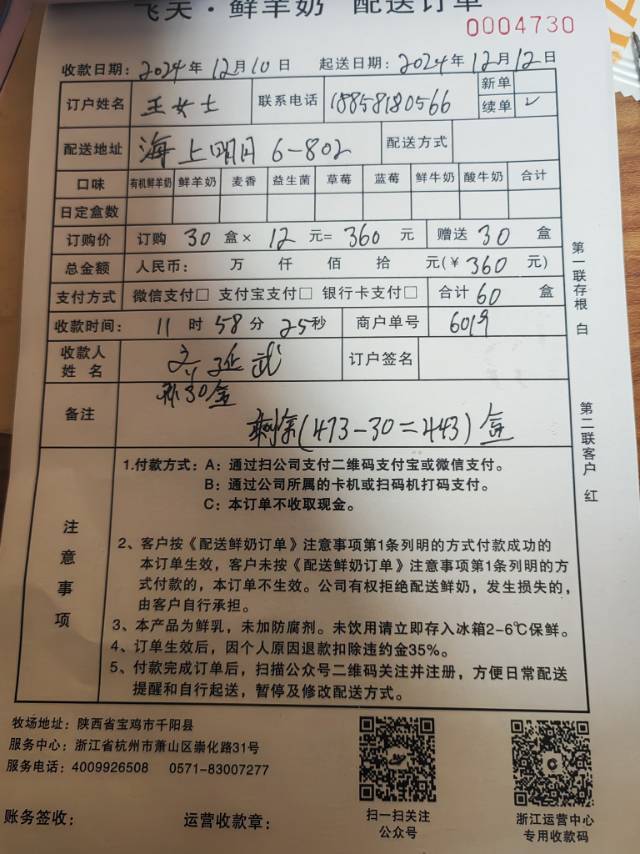 飞天·鲜羊奶 配送订单
0004730
收款日期：2024年12月10日 起送日期：2024年12月12日
订户姓名 王女士 联系电话 18858180566 新单
续单 ✓
配送地址 海上明月 6-802 配送方式
口味 有机鲜羊奶 鲜羊奶 麦香 益生菌 草莓 蓝莓 鲜牛奶 酸牛奶 合计
日定盒数
订购价 订购 30 盒× 12 元= 360 元 赠送 30 盒
总金额 人民币： 万 仟 佰 拾 元(￥360 元)
支付方式 微信支付□ 支付宝支付□ 银行卡支付□ 合计 60 盒
收款时间： 11 时 58 分 25秒 商户单号 6019
收款人
姓 名 订户签名
备注 30盒
剩余(473-30=443)盒
第一联存根 白
第二联客户 红
注意事项
1.付款方式：A：通过扫公司支付二维码支付宝或微信支付。
B：通过公司所属的卡机或扫码机打码支付。
C：本订单不收取现金。
2、客户按《配送鲜奶订单》注意事项第1条列明的方式付款成功的
本订单生效，客户未按《配送鲜奶订单》注意事项第1条列明的方
式付款的，本订单不生效。公司有权拒绝配送鲜奶，发生损失的，
由客户自行承担。
3、本产品为鲜乳，未加防腐剂。未饮用请立即存入冰箱2-6℃保鲜。
4、订单生效后，因个人原因退款扣除违约金35%。
5、付款完成订单后，扫描公众号二维码关注并注册，方便日常配送
提醒和自行起送，暂停及修改配送方式。
牧场地址：陕西省宝鸡市千阳县
服务中心：浙江省杭州市萧山区崇化路31号
服务电话：4009926508 0571-83007277
账务签收： 运营收款章：
扫一扫关注
公众号
浙江运营中心
专用收款码